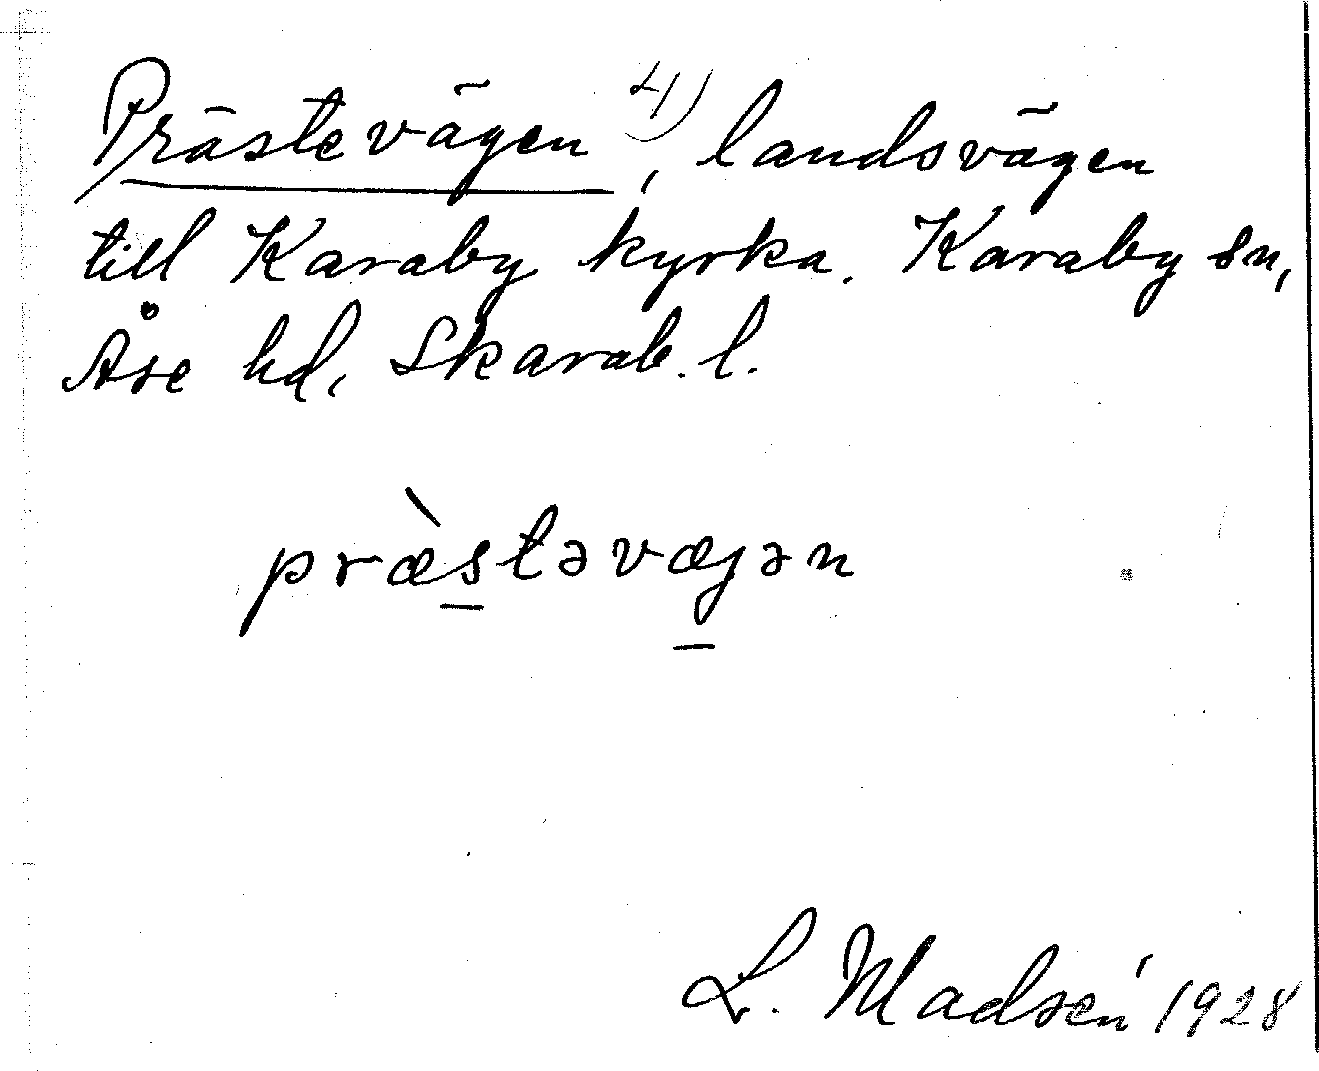 Prästevägen 4), landsvägen
till Karaby kyrka. Karaby sn,
Åse hd, Skarab. l.
præ̀stəvæjən
L. Madsén 1928